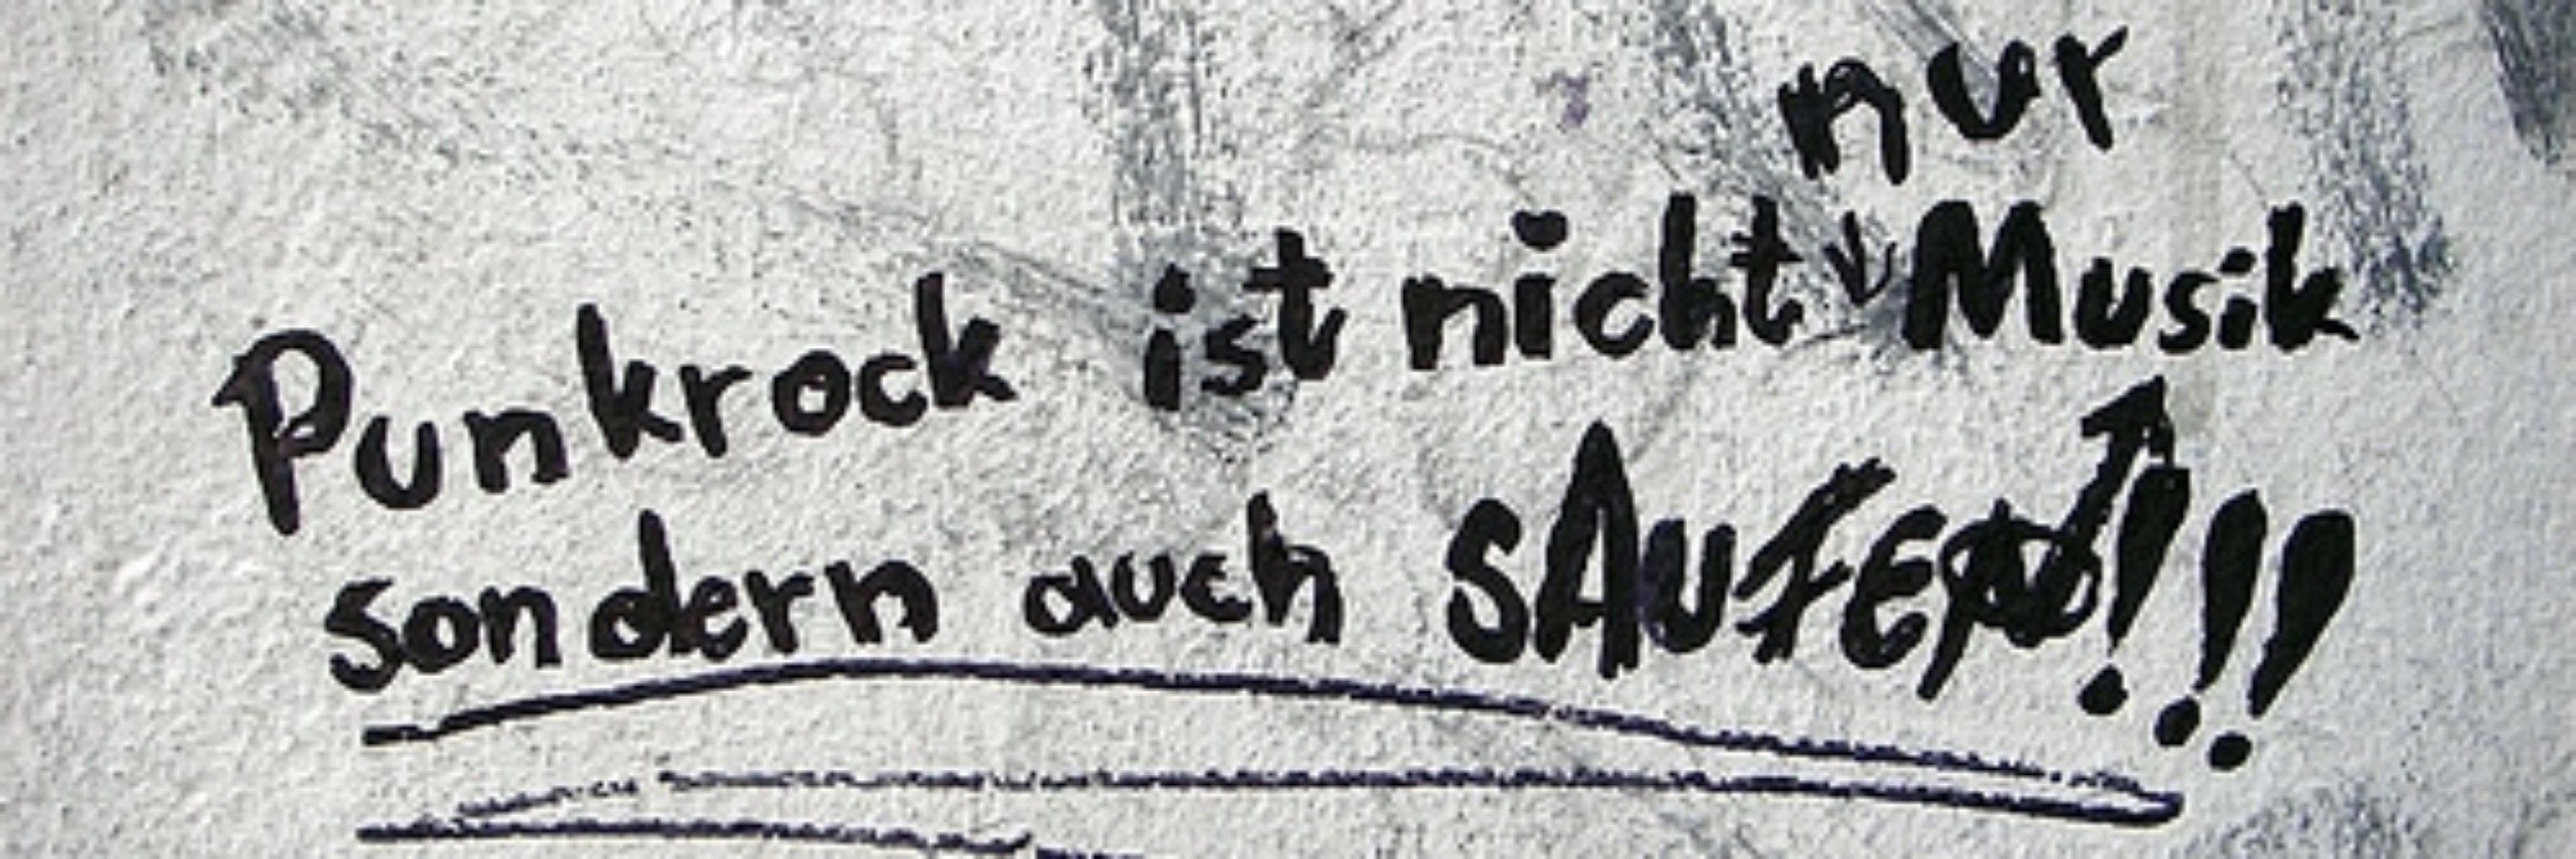 nur
Punkrock ist nicht Musik
sondern auch SAUFEN!!!